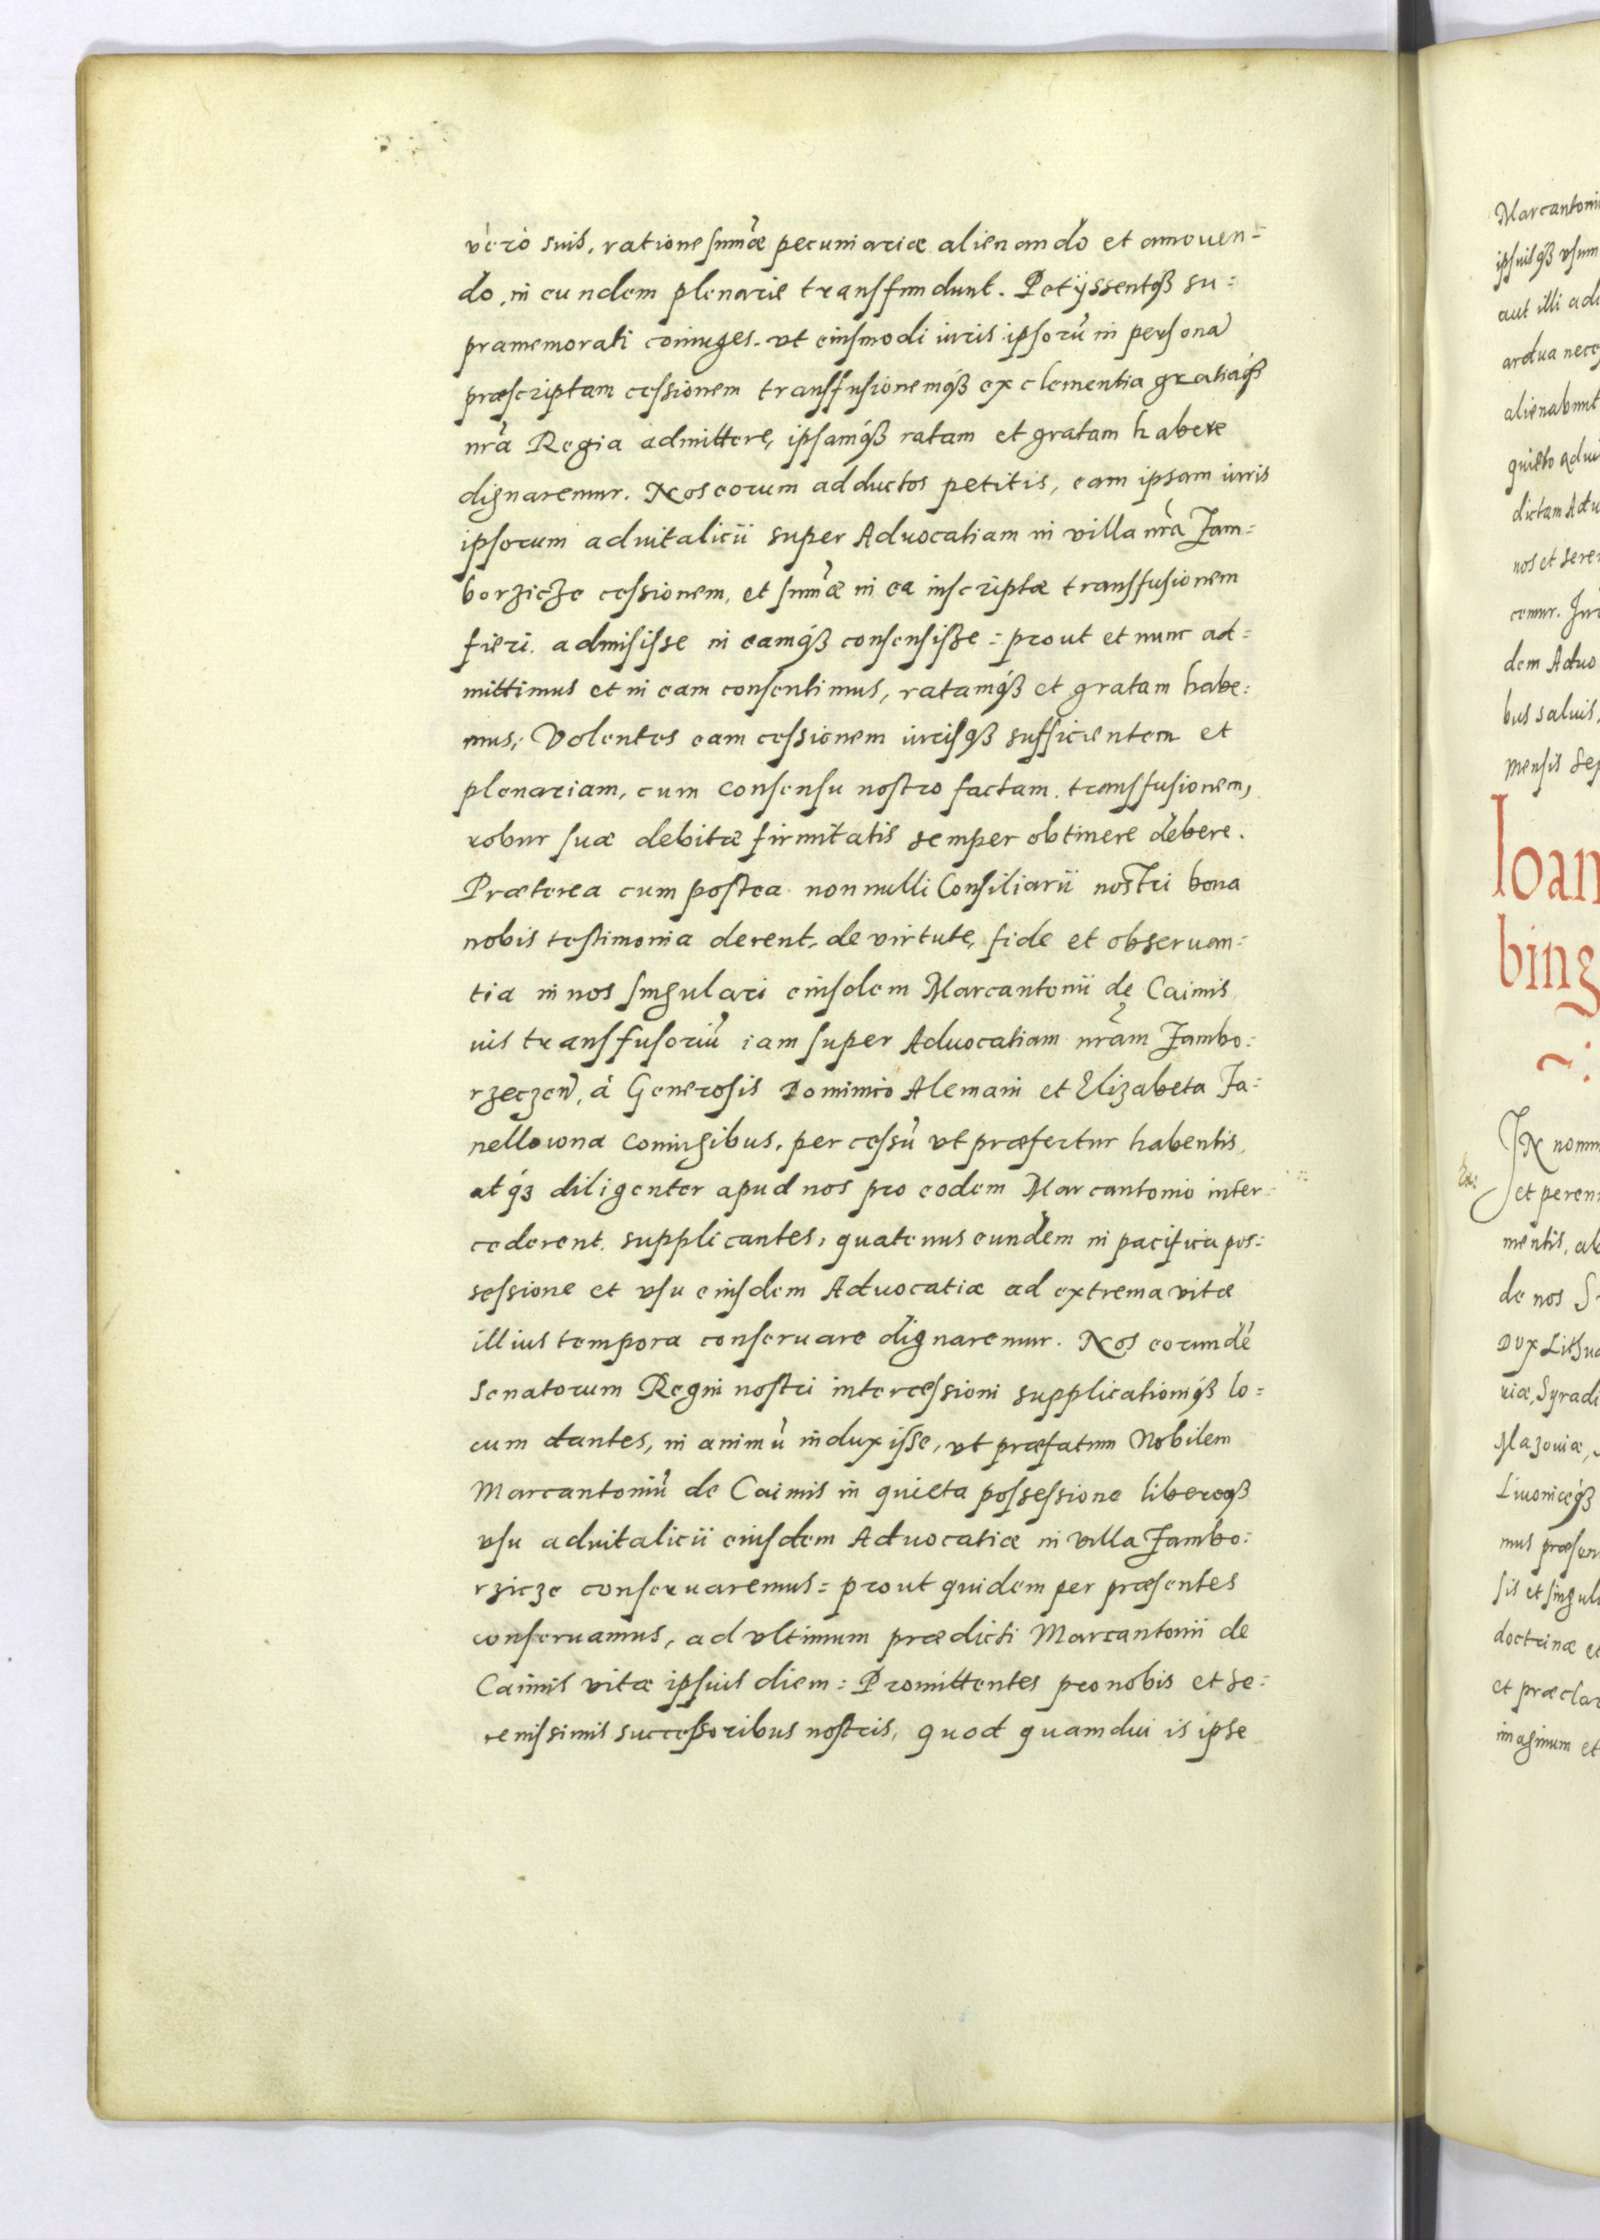 vero suis, ratione sum̃æ pecuniariæ alienando et amouen=
do, in eundem plenarie transfundunt. Petijssentqß su=
pramemorati coniuges. vt eiusmodi iuris ipsorũ in persona
præscriptam cessionem transfusionemqß ex clementia gratiaqß
nrã Regia admittere, ipsamqß ratam et gratam habere
dignaremur. Nos eorum adductos petitis, eam ipsam iuris
ipsorum aduitalicii super Aduocatiam in villa nrã Jam=
borzicze cessionem, et sum̃æ in ea inscriptæ transfusionem
fieri. admisisse in eamqß consensisse = prout et nunc ad=
mittimus et in eam consentimus, ratamqß et gratam habe=
mus; Volentes eam cessionem iurisqß sufficientem et
plenariam, cum consensu nostro factam. transfusionem,
robur suæ debitæ firmitatis semper obtinere debere.
Præterea cum postea nonnulli Consiliarii nostri bona
nobis testimonia derent, de virtute, fide et obseruan=
tia in nos singulari eiusdem Marcantonii de Caimis
ius transfusoriũ iam super Aduocatiam nrãm Jambo=
rzeczen̄, à Generosis Dominico Alemani et Elizabeta Ja=
nellowna Coniugibus, per cessũ vt præfertur habentis,
atqз diligenter apud nos pro eodem Marcantonio inter=
cederent. supplicantes, quatenus eundem in pacifica pos=
sessione et vsu eiusdem Aduocatiæ ad extrema vitæ
illius tempora conseruare dignaremur. Nos eorundẽ
Senatorum Regni nostri intercessioni supplicationiqß lo=
cum dantes, in animũ induxisse, vt præfatum Nobilem
Marcantoniũ de Caimis in quieta possessione liberoqß
vsu aduitalicii eiusdem Aduocatiæ in villa Jambo=
rzicze conseruaremus = prout quidem per præsentes
conseruamus, ad vltimum prædicti Marcantonii de
Caimis vitæ ipsius diem = Promittentes pro nobis et se=
renissimis successoribus nostris, quod quamdui is ipse
Marcantoni
ipsiusqß vsum
aut illi adi
ardua nece
alienabunt
quieto adui
dictam Adu
nos et sere
cemur. Jur
dem Aduo
bus saluis,
mensis Sep
Ioan
bing
~.
JN nomin
et peren
mentis, ab
de nos S
DVX Lithua
riæ, Syradi
Mazouiæ,
Liuoniæqß
mus præsen
sis et singul
doctrinæ et
et præclar
imaginum et